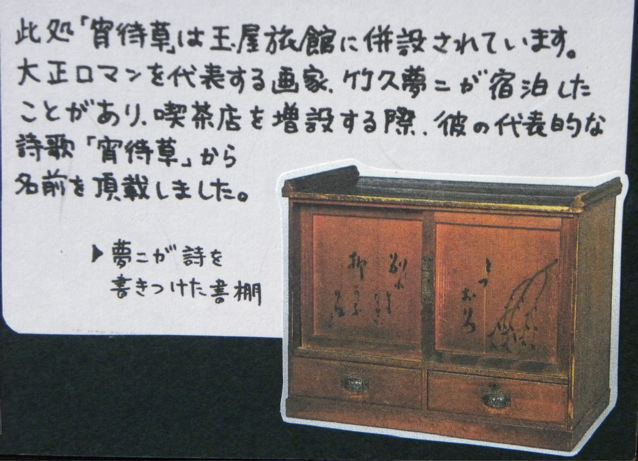 此処「宵待草」は玉屋旅館に併設されています。
大正ロマンを代表する画家、竹久夢二が宿泊した
ことがあり、喫茶店を増設する際、彼の代表的な
詩歌「宵待草」から
名前を頂載しました。
▶夢二が詩を
書きつけた書棚